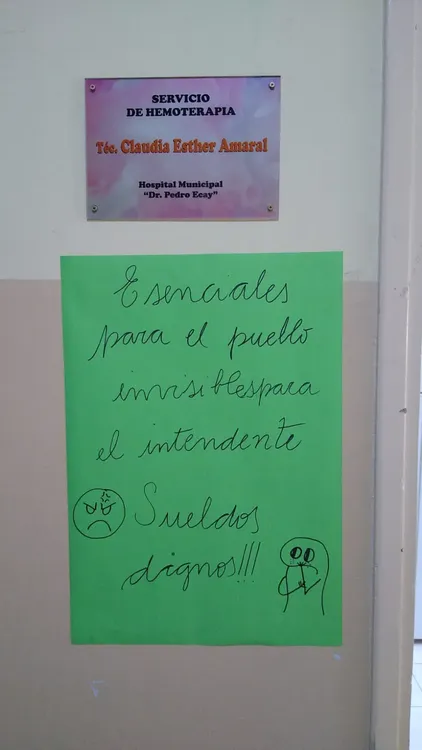 SERVICIO
DE HEMOTERAPIA
Téc. Claudia Esther Amaral
Hospital Municipal
"Dr. Pedro Ecay"
Esenciales
para el pueblo
invisiblespara
el intendente
Sueldos
dignos!!!